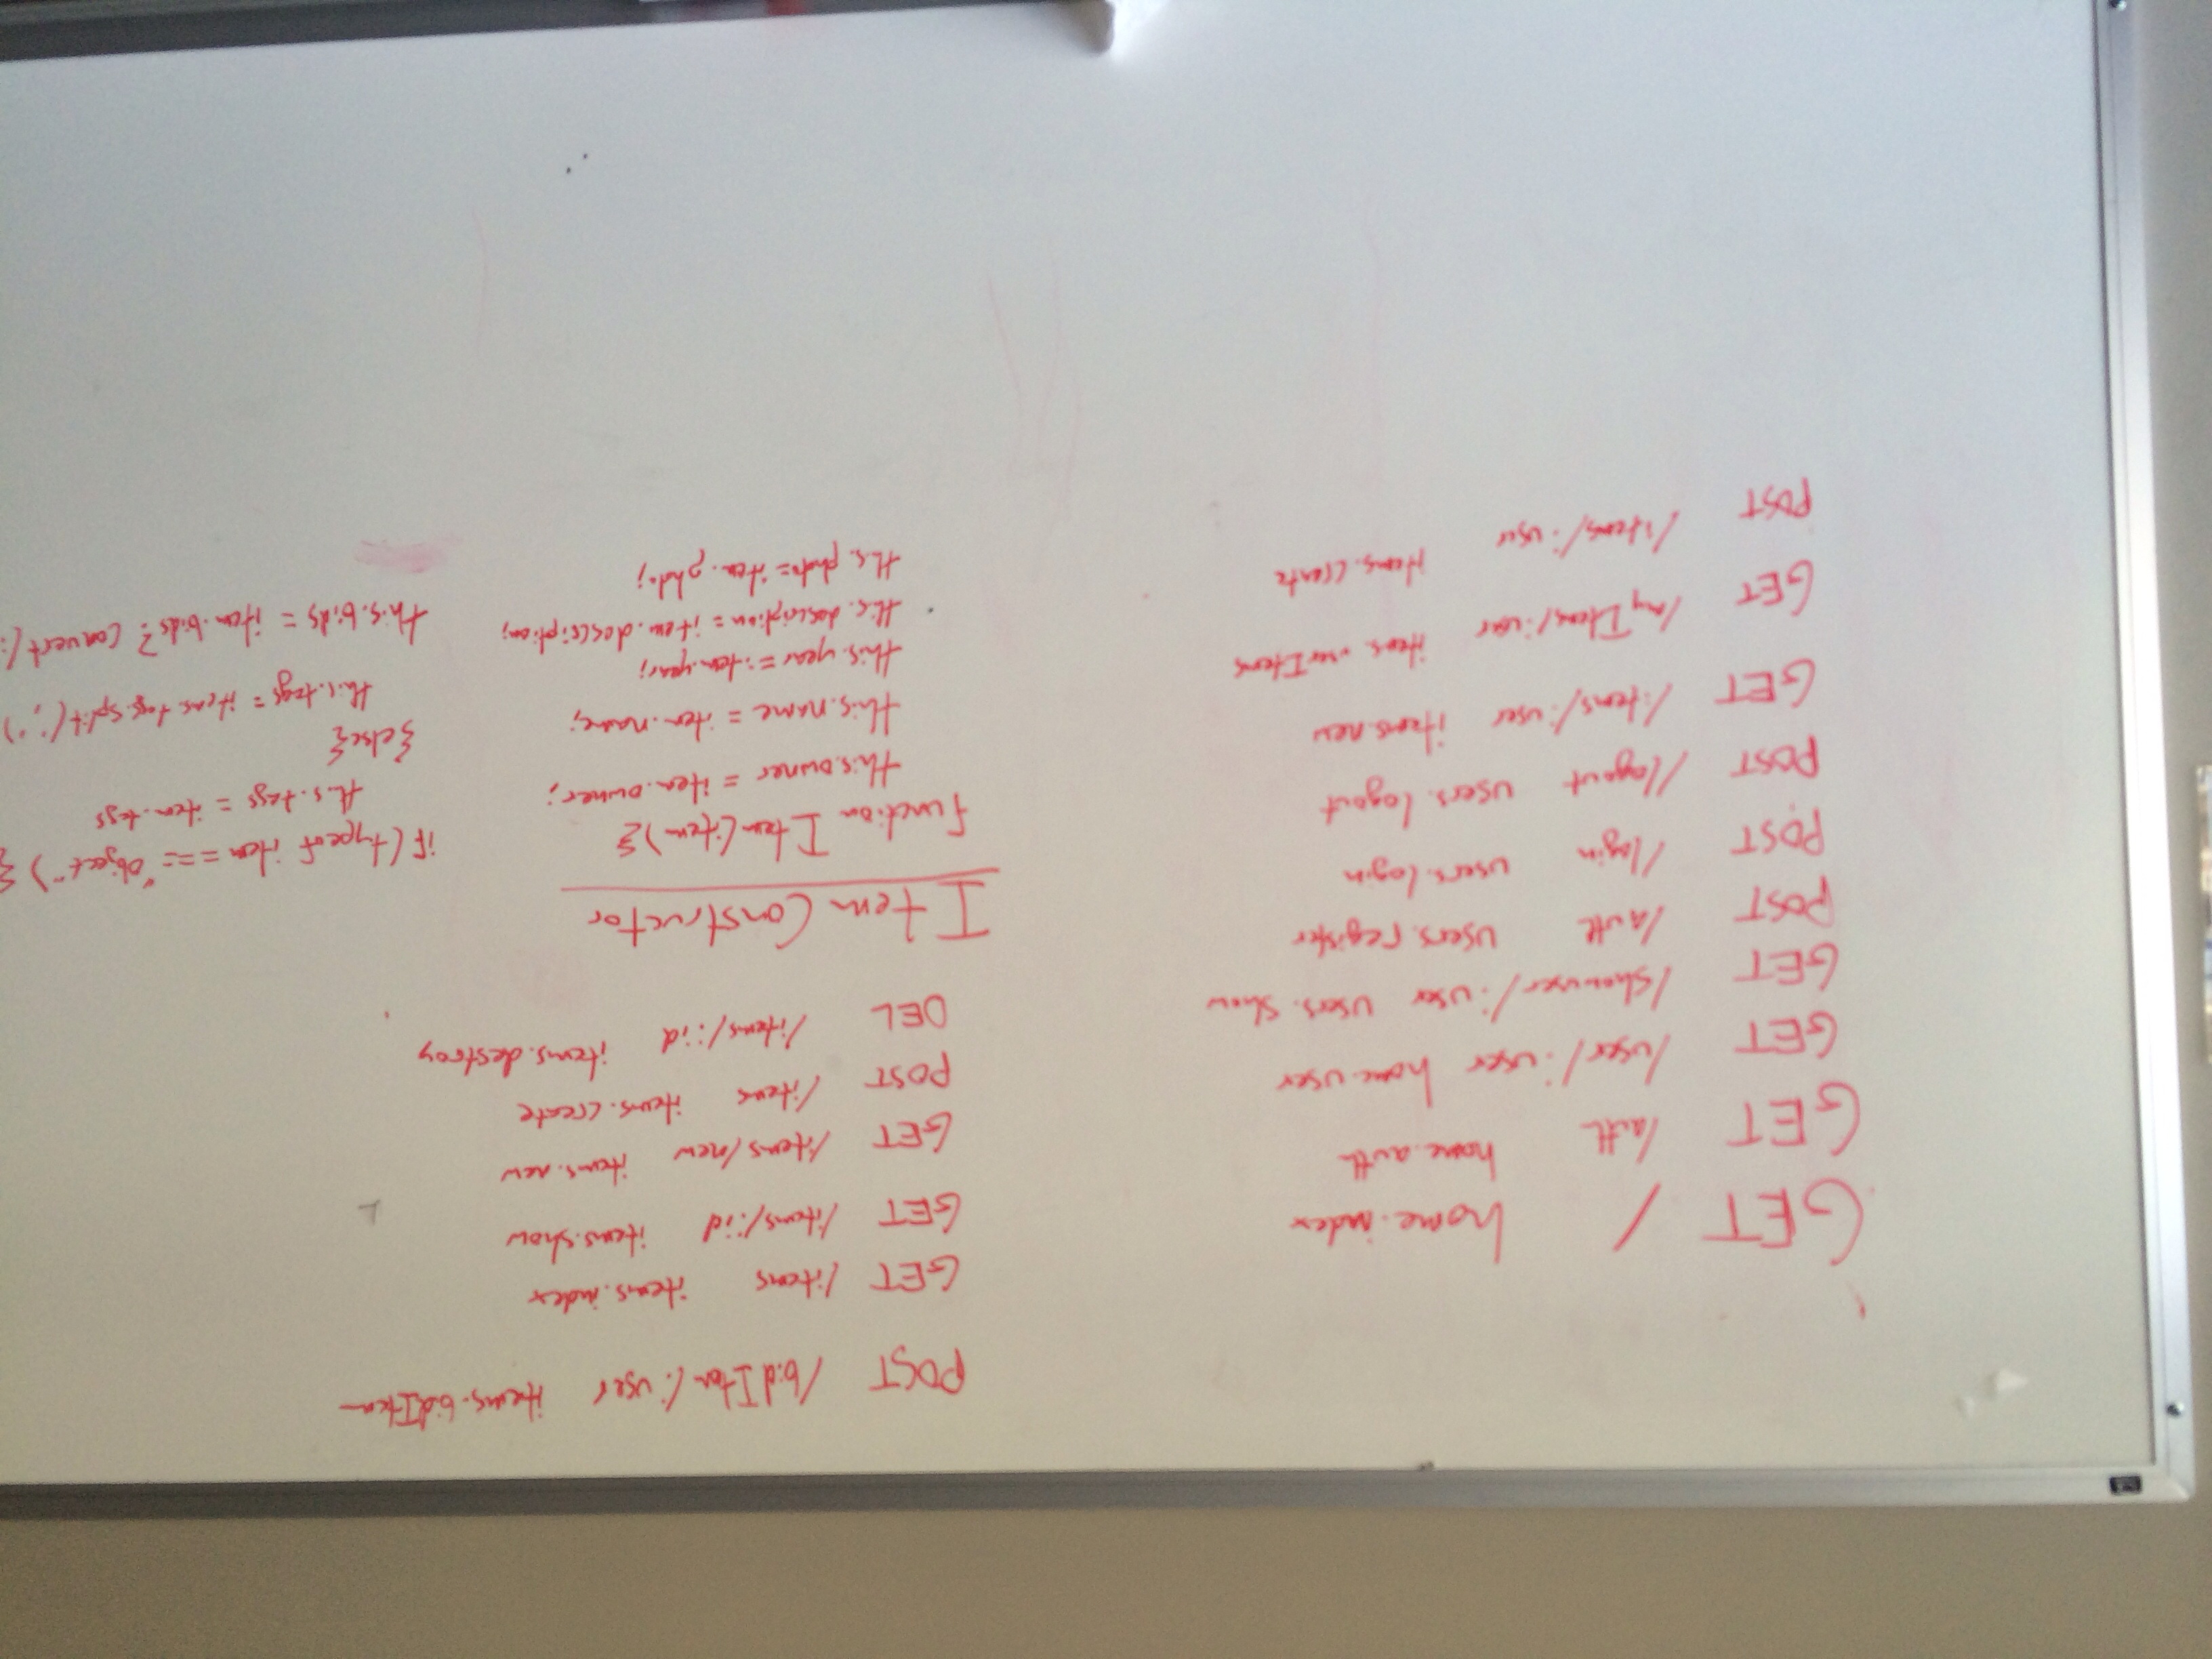 GET / home.index
GET /auth home.auth
GET /user/:user home.user
GET /showuser/:user users.show
POST /auth users.register
POST /login users.login
POST /logout users.logout
GET /items/:user items.new
GET /myItems/:user items.userItems
POST /items/:user items.create
POST /bidItem/:user items.bidItem
GET /items items.index
GET /items/:id items.show
GET /items/new items.new
POST /items items.create
DEL /items/:id items.destroy
Item Constructor
function Item(item){
this.owner = item.owner;
this.name = item.name;
this.year = item.year;
this.description = item.description;
this.photo = item.photo;
if(typeof item === "object") {
this.tags = item.tags
}else{
this.tags = items.tags.split(',')
this.bids = item.bids? convert(